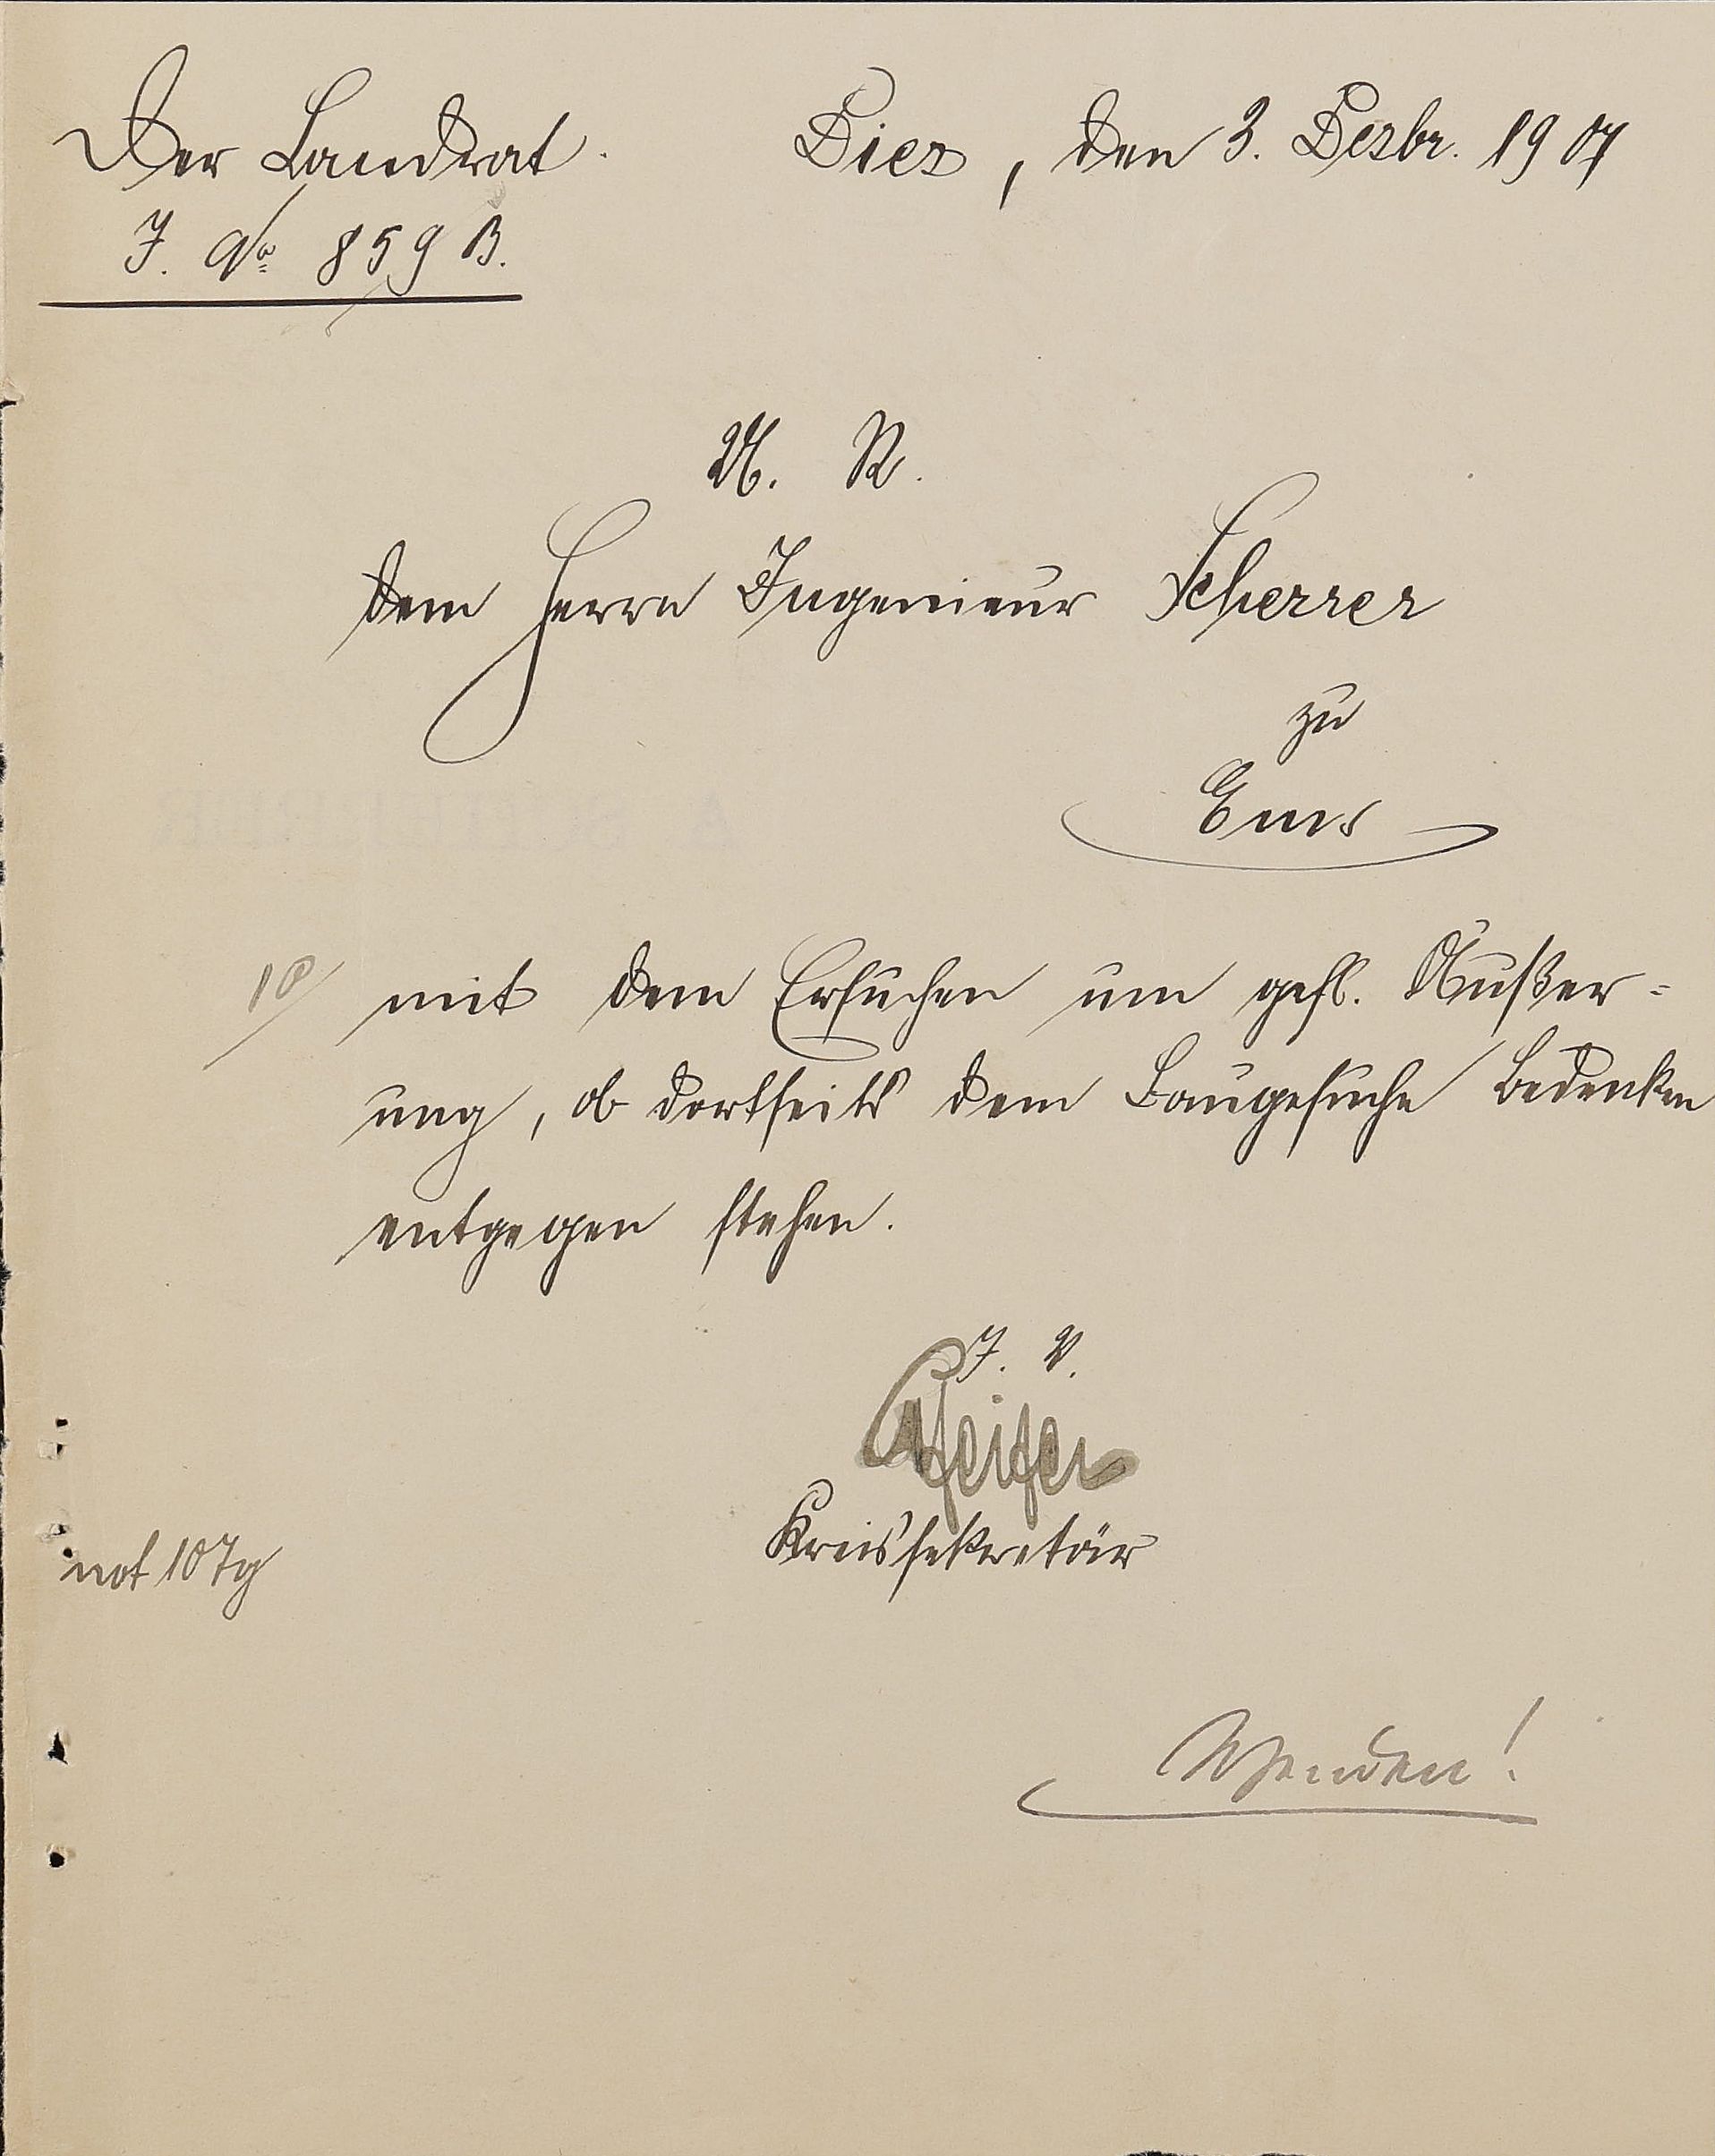 Der Landrat. Diez, den 3. Dezbr. 1907
J. No 859 B.
U. R.
dem Herrn Ingenieur Scherrer
zu
Ems
10 mit dem Ersuchen um gefl. Äußer-
ung, ob dortseits dem Baugesuche Bedenken
entgegen stehen.
J. V.
Pfeifer
Kreissekretär
not 10 Tg
Wenden!